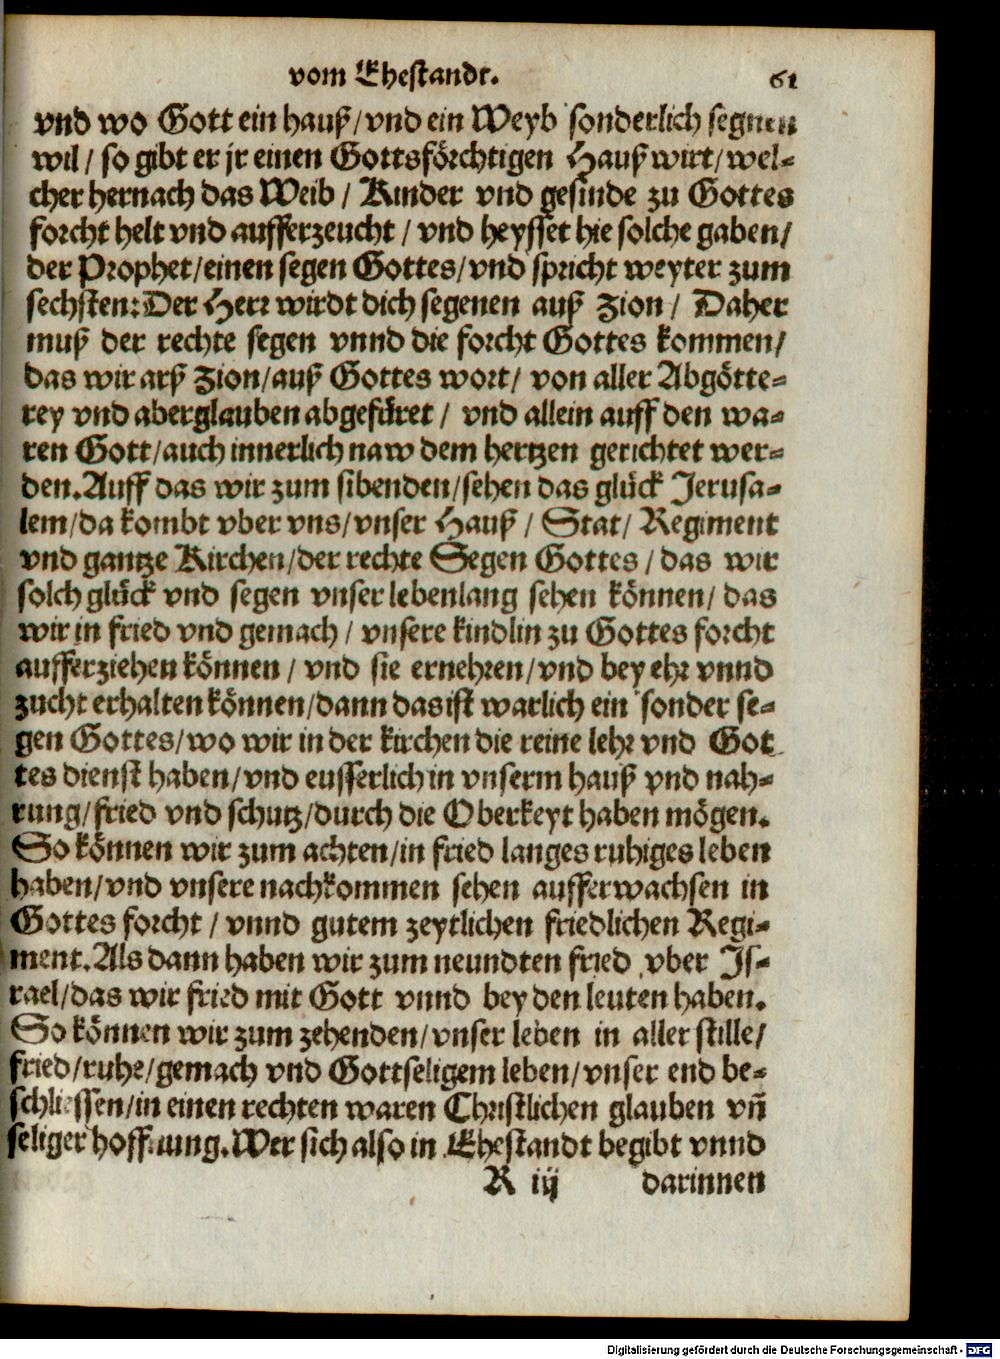 vom Ehestandt. 61
vnd wo Gott ein hauß/vnd ein Weyb sonderlich segnen
wil/ so gibt er jr einen Gottsförchtigen Haußwirt/wel-
cher hernach das Weib / Kinder vnd gesinde zu Gottes
forcht helt vnd aufferzeucht / vnd heysset hie solche gaben/
der Prophet/einen segen Gottes/vnd spricht weyter zum
sechsten: Der Herr wirdt dich segenen auß Zion / Daher
muß der rechte segen vnnd die forcht Gottes kommen/
das wir arß Zion/auß Gottes wort/ von aller Abgötte-
rey vnd aberglauben abgefüret / vnd allein auff den wa-
ren Gott/auch innerlich naw dem hertzen gerichtet wer-
den. Auff das wir zum sibenden/sehen das glück Jerusa-
lem/da kombt vber vns/vnser Hauß / Stat/ Regiment
vnd gantze Kirchen/der rechte Segen Gottes / das wir
solch glück vnd segen vnser lebenlang sehen können/ das
wir in fried vnd gemach / vnsere kindlin zu Gottes forcht
aufferziehen können / vnd sie ernehren/vnd bey ehr vnnd
zucht erhalten können/dann das ist warlich ein sonder se-
gen Gottes/wo wir in der kirchen die reine lehr vnd Got
tes dienst haben/vnd eusserlich in vnserm hauß vnd nah-
rung/fried vnd schutz/durch die Oberkeyt haben mögen.
So können wir zum achten/in fried langes ruhiges leben
haben/vnd vnsere nachkommen sehen aufferwachsen in
Gottes forcht / vnnd gutem zeytlichen friedlichen Regi-
ment. Als dann haben wir zum neundten fried vber Js-
rael/das wir fried mit Gott vnnd bey den leuten haben.
So können wir zum zehenden/vnser leben in aller stille/
fried/ruhe/gemach vnd Gottseligem leben/vnser end be-
schliessen/in einen rechten waren Christlichen glauben vn̄
seliger hoffnung. Wer sich also in Ehestandt begibt vnnd
R iij darinnen
Digitalisierung gefördert durch die Deutsche Forschungsgemeinschaft - DFG